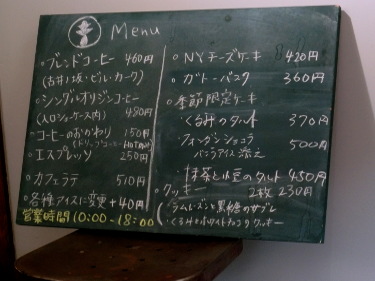 Menu
・ブレンドコーヒー 460円
(古井ノ坂・ビル・カーク)
・シングルオリジンコーヒー
(入口ショーケース内) 480円
・コーヒーのおかわり 150円
(ドリップコーヒー Hot
・エスプレッソ 250円
・カフェラテ 510円
・各種アイスに変更 +40円
営業時間 10:00-18:00
・NYチーズケーキ 420円
・ガトーバスク 360円
・季節限定ケーキ
・くるみのタルト 370円
・フォンダンショコラ
バニラアイス添え 500円
・抹茶と小豆のタルト 450円
・クッキー 2枚 230円
・ラムレーズンと黒糖のサブレ
・くるみとホワイトチョコのクッキー